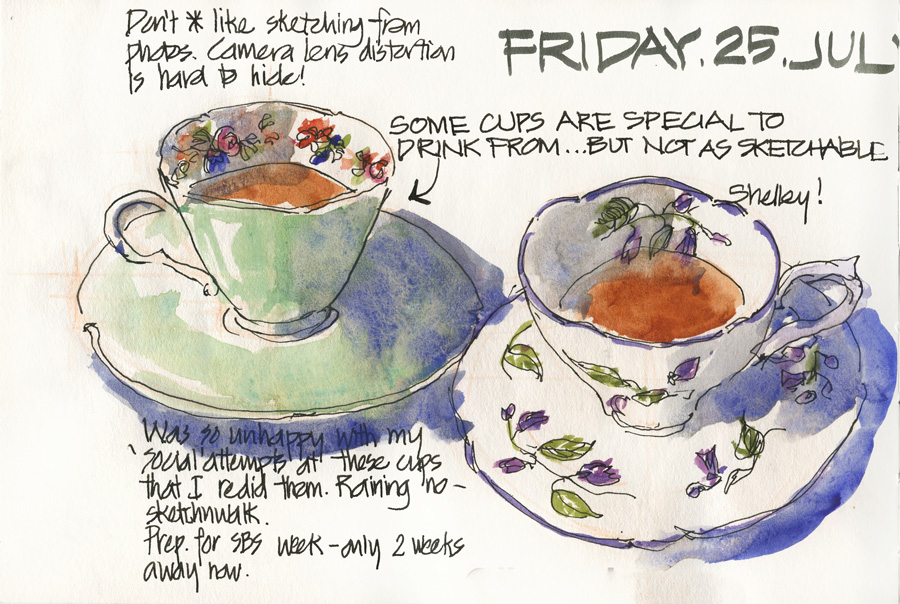 Don't * like sketching from
photos. Camera lens distortion
is hard to hide!
FRIDAY.25.JULY
SOME CUPS ARE SPECIAL TO
DRINK FROM...BUT NOT AS SKETCHABLE
Shelley!
Was so unhappy with my
social attempts at these cups
that I redid them. Raining no-
sketchnwalk.
Prep. for SBS week - only 2 weeks
away now.